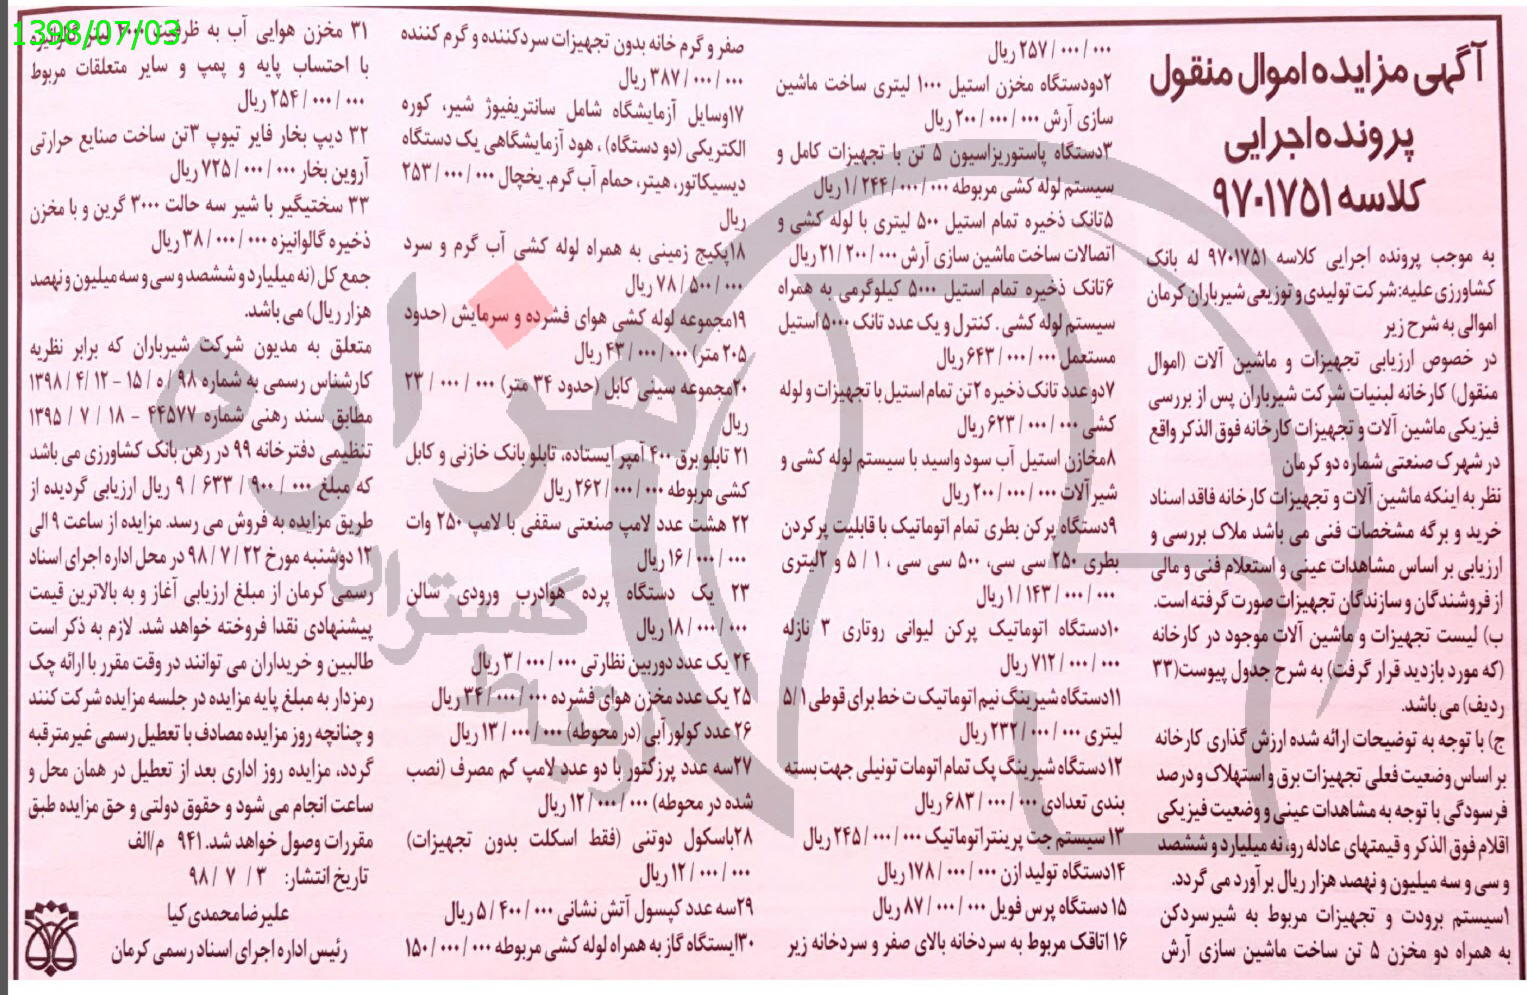 1398/07/03
آگهی مزایده اموال منقول
پرونده اجرایی
کلاسه ۹۷۰۱۷۵۱
به موجب پرونده اجرایی کلاسه ۹۷۰۱۷۵۱ له بانک
کشاورزی علیه: شرکت تولیدی و توزیعی شیرباران کرمان
اموالی به شرح زیر
در خصوص ارزیابی تجهیزات و ماشین آلات (اموال
منقول) کارخانه لبنیات شرکت شیرباران پس از بررسی
فیزیکی ماشین آلات و تجهیزات کارخانه فوق الذکر واقع
در شهرک صنعتی شماره دو کرمان
نظر به اینکه ماشین آلات و تجهیزات کارخانه فاقد اسناد
خرید و برگه مشخصات فنی می باشد ملاک بررسی و
ارزیابی بر اساس مشاهدات عینی و استعلام فنی و مالی
از فروشندگان و سازندگان تجهیزات صورت گرفته است.
ب) لیست تجهیزات و ماشین آلات موجود در کارخانه
(که مورد بازدید قرار گرفت) به شرح جدول پیوست (۳۳
ردیف) می باشد.
ج) با توجه به توضیحات ارائه شده ارزش گذاری کارخانه
بر اساس وضعیت فعلی تجهیزات برق و استهلاک و درصد
فرسودگی با توجه به مشاهدات عینی و وضعیت فیزیکی
اقلام فوق الذکر و قیمتهای عادله روز، نه میلیارد و ششصد
و سی و سه میلیون و نهصد هزار ریال بر آورد می گردد.
۱سیستم برودت و تجهیزات مربوط به شیرسردکن
به همراه دو مخزن ۵ تن ساخت ماشین سازی آرش
۲۵۷/۰۰۰/۰۰۰ ریال
۲دودستگاه مخزن استیل ۱۰۰۰ لیتری ساخت ماشین
سازی آرش ۲۰۰/۰۰۰/۰۰۰ ریال
۳دستگاه پاستوریزاسیون ۵ تن با تجهیزات کامل و
سیستم لوله کشی مربوطه ۱/۲۴۴/۰۰۰/۰۰۰ ریال
۵تانک ذخیره تمام استیل ۵۰۰ لیتری با لوله کشی و
اتصالات ساخت ماشین سازی آرش ۲۱/۲۰۰/۰۰۰ ریال
۶تانک ذخیره تمام استیل ۵۰۰۰ کیلوگرمی به همراه
سیستم لوله کشی . کنترل و یک عدد تانک ۵۰۰۰ استیل
مستعمل ۶۴۳/۰۰۰/۰۰۰ ریال
۷دو عدد تانک ذخیره ۲تن تمام استیل با تجهیزات و لوله
کشی ۶۲۳/۰۰۰/۰۰۰ ریال
۸مخازن استیل آب سود واسید با سیستم لوله کشی و
شیرآلات ۲۰۰/۰۰۰/۰۰۰ ریال
۹دستگاه پرکن بطری تمام اتوماتیک با قابلیت پرکردن
بطری ۲۵۰ سی سی، ۵۰۰ سی سی ، ۱/۵ و ۲لیتری
۱/۱۴۳/۰۰۰/۰۰۰ ریال
۱۰دستگاه اتوماتیک پرکن لیوانی روتاری ۳ نازله
۷۱۲/۰۰۰/۰۰۰ ریال
۱۱دستگاه شیرینگ نیم اتوماتیک ت خط برای قوطی ۵/۱
لیتری ۲۳۲/۰۰۰/۰۰۰ ریال
۱۲دستگاه شیرینگ پک تمام اتومات تونیلی جهت بسته
بندی تعدادی ۶۸۳/۰۰۰/۰۰۰ ریال
۱۳ سیستم جت پرینتر اتوماتیک ۲۴۵/۰۰۰/۰۰۰ ریال
۱۴دستگاه تولید ازن ۱۷۸/۰۰۰/۰۰۰ ریال
۱۵ دستگاه پرس فویل ۸۷/۰۰۰/۰۰۰ ریال
۱۶ اتاقک مربوط به سردخانه بالای صفر و سردخانه زیر
صفر و گرم خانه بدون تجهیزات سردکننده و گرم کننده
۳۸۷/۰۰۰/۰۰۰ ریال
۱۷وسایل آزمایشگاه شامل سانتریفیوژ شیر، کوره
الکتریکی (دو دستگاه) ، هود آزمایشگاهی یک دستگاه
دیسیکاتور، هیتر، حمام آب گرم. یخچال ۲۵۳/۰۰۰/۰۰۰
ریال
۱۸پکیج زمینی به همراه لوله کشی آب گرم و سرد
۷۸/۵۰۰/۰۰۰ ریال
۱۹مجموعه لوله کشی هوای فشرده و سرمایش (حدود
۲۰۵ متر) ۴۳/۰۰۰/۰۰۰ ریال
۲۰مجموعه سینی کابل (حدود ۳۴ متر) ۲۳/۰۰۰/۰۰۰
ریال
۲۱ تابلو برق ۴۰۰ آمپر ایستاده، تابلو بانک خازنی و کابل
کشی مربوطه ۲۶۲/۰۰۰/۰۰۰ ریال
۲۲ هشت عدد لامپ صنعتی سقفی با لامپ ۲۵۰ وات
۱۶/۰۰۰/۰۰۰ ریال
۲۳ یک دستگاه پرده هوادرب ورودی شالن
۱۸/۰۰۰/۰۰۰ ریال
۲۴ یک عدد دوربین نظارتی ۳/۰۰۰/۰۰۰ ریال
۲۵ یک عدد مخزن هوای فشرده ۳۴/۰۰۰/۰۰۰ ریال
۲۶ عدد کولور آبی (در محوطه) ۱۳/۰۰۰/۰۰۰ ریال
۲۷سه عدد پرزکتور با دو عدد لامپ کم مصرف (نصب
شده در محوطه) ۱۲/۰۰۰/۰۰۰ ریال
۲۸باسکول دوتنی (فقط اسکلت بدون تجهیزات)
۱۲/۰۰۰/۰۰۰ ریال
۲۹سه عدد کپسول آتش نشانی ۵/۴۰۰/۰۰۰ ریال
۳۰ایستگاه گاز به همراه لوله کشی مربوطه ۱۵۰/۰۰۰/۰۰۰
۳۱ مخزن هوایی آب به ظرفیت ۲۰۰۰ لیتر گالوانیزه
با احتساب پایه و پمپ و سایر متعلقات مربوط
۲۵۴/۰۰۰/۰۰۰ ریال
۳۲ دیپ بخار فایر تیوپ ۳تن ساخت صنایع حرارتی
آروین بخار ۷۲۵/۰۰۰/۰۰۰ ریال
۳۳ سختیگیر با شیر سه حالت ۳۰۰۰ گرین و با مخزن
ذخیره گالوانیزه ۳۸/۰۰۰/۰۰۰ ریال
جمع کل (نه میلیارد و ششصد و سی و سه میلیون و نهصد
هزار ریال) می باشد.
متعلق به مدیون شرکت شیرباران که برابر نظریه
کارشناس رسمی به شماره ۹۸/ه/۱۵ - ۱۳۹۸/۴/۱۲
مطابق سند رهنی شماره ۴۴۵۷۷ - ۱۳۹۵/۷/۱۸
تنظیمی دفترخانه ۹۹ در رهن بانک کشاورزی می باشد
که مبلغ ۹/۶۳۳/۹۰۰/۰۰۰ ریال ارزیابی گردیده از
طریق مزایده به فروش می رسد. مزایده از ساعت ۹ الی
۱۲ دوشنبه مورخ ۹۸/۷/۲۲ در محل اداره اجرای اسناد
رسمی کرمان از مبلغ ارزیابی آغاز و به بالاترین قیمت
پیشنهادی نقدا فروخته خواهد شد. لازم به ذکر است
طالبین و خریداران می توانند در وقت مقرر با ارائه چک
رمزدار به مبلغ پایه مزایده در جلسه مزایده شرکت کنند
و چنانچه روز مزایده مصادف با تعطیل رسمی غیرمترقبه
گردد، مزایده روز اداری بعد از تعطیل در همان محل و
ساعت انجام می شود و حقوق دولتی و حق مزایده طبق
مقررات وصول خواهد شد. ۹۴۱ م/الف
تاریخ انتشار: ۹۸/۷/۳
علیرضا محمدی کیا
رئیس اداره اجرای اسناد رسمی کرمان
هزاره
گستران
ارتباط